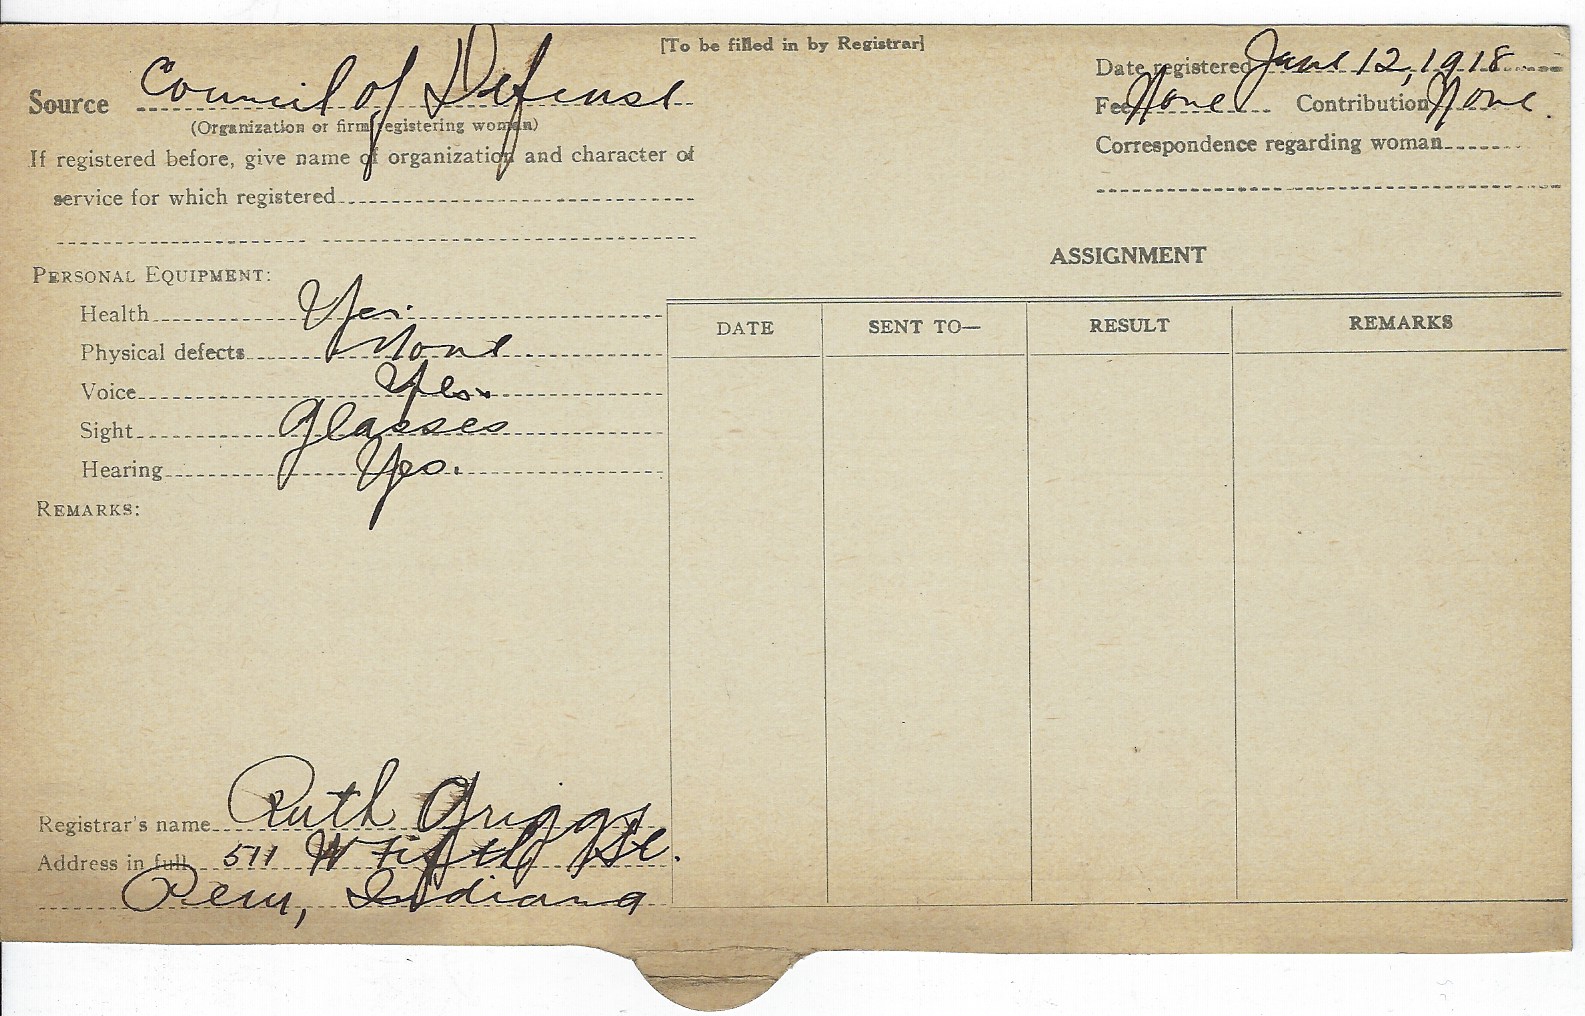 [To be filled in by Registrar]
Source Council of Defense
(Organization or firm registering woman)
If registered before, give name of organization and character of
service for which registered
Date registered June 12, 1918
Fee None Contribution None
Correspondence regarding woman
PERSONAL EQUIPMENT:
Health Yes.
Physical defects None
Voice Yes.
Sight Glasses
Hearing Yes.
REMARKS:
ASSIGNMENT
DATE SENT TO— RESULT REMARKS
Registrar's name Ruth Griggs
Address in full 511 W Fifth St.
Peru, Indiana